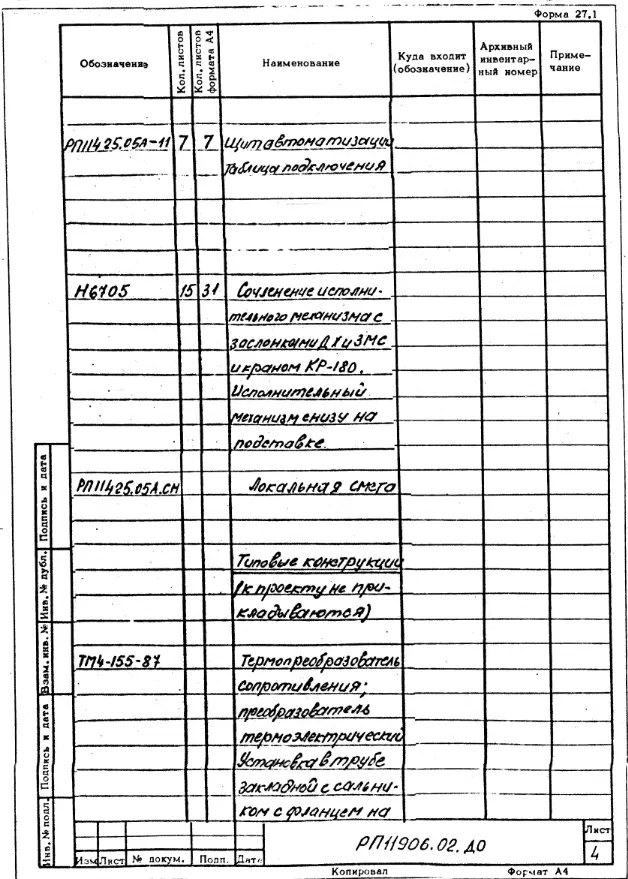 Форма 27.1
Обозначение
Кол. листов
Кол. листов формата А4
Наименование
Куда входит (обозначение)
Архивный инвентар-ный номер
Приме-чание
РП11425.05А-11 7 7 Щит автоматизации
Таблица подключения
Н6705 15 31 Сочленение исполни-
тельного механизма с
заслонками ДХ и ЗМС
и краном КР-180.
Исполнительный
механизм снизу на
подставке.
РП11425.05А.СМ Локальная смета
Типовые конструкции
(к проекту не при-
кладываются)
ТМ4-155-87 Термопреобразователь
сопротивления;
преобразователь
термоэлектрический
Установка в трубе
закладной с сальни-
ком с фланцем на
Инв. № подл.
Подпись и дата
Взам. инв. №
Инв. № дубл.
Подпись и дата
Изм Лист № докум. Подп. Дата
РП11906.02.ДО
Лист
4
Копировал Формат А4